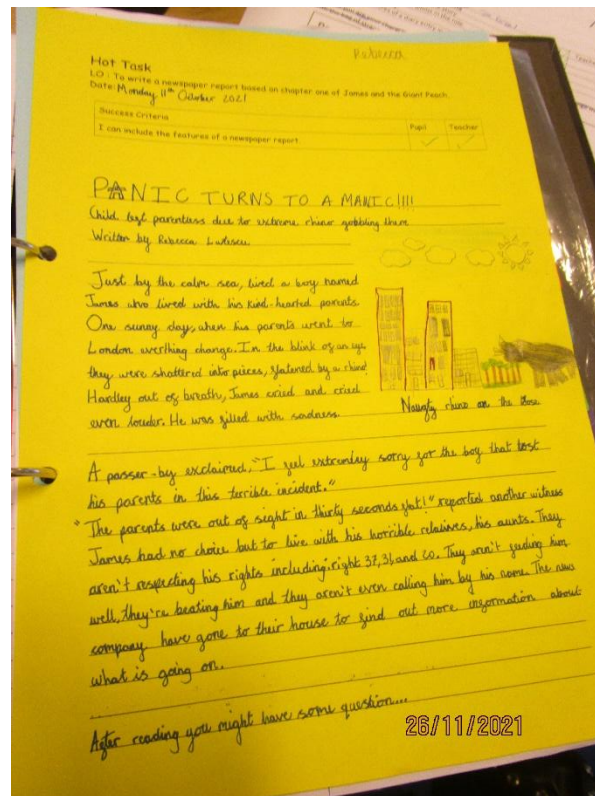 Rebecca
Hot Task
LO : To write a newspaper report based on chapter one of James and the Giant Peach.
Date: Monday 11th October 2021
Success Criteria
Pupil Teacher
I can include the features of a newspaper report.
PANIC TURNS TO A MANIC!!!!
Child left parentless due to extreme rhinor gobbling them
Written by Rebecca
Just by the calm sea, lived a boy named
James who lived with his kind-hearted parents.
One sunny day, when his parents went to
London everthing change. In the blink of an eye
they were shattered into pieces, flatened by a rhino!
Hardley out of breath, James cried and cried
even louder. He was filled with sadness.
Naughty rhino on the loose.
A passer-by exclaimed, "I feel extremley sorry for the boy that lost
his parents in this terrible incident."
"The parents were out of sight in thirty seconds flat!" reported another witness
James had no choice but to live with his horrible relatives, his aunts. They
aren't respecting his rights including: right 37, 31 and 20. They aren't feeding him
well, they're beating him and they aren't even calling him by his name. The news
company have gone to their house to find out more information about
what is going on.
After reading you might have some question...
26/11/2021